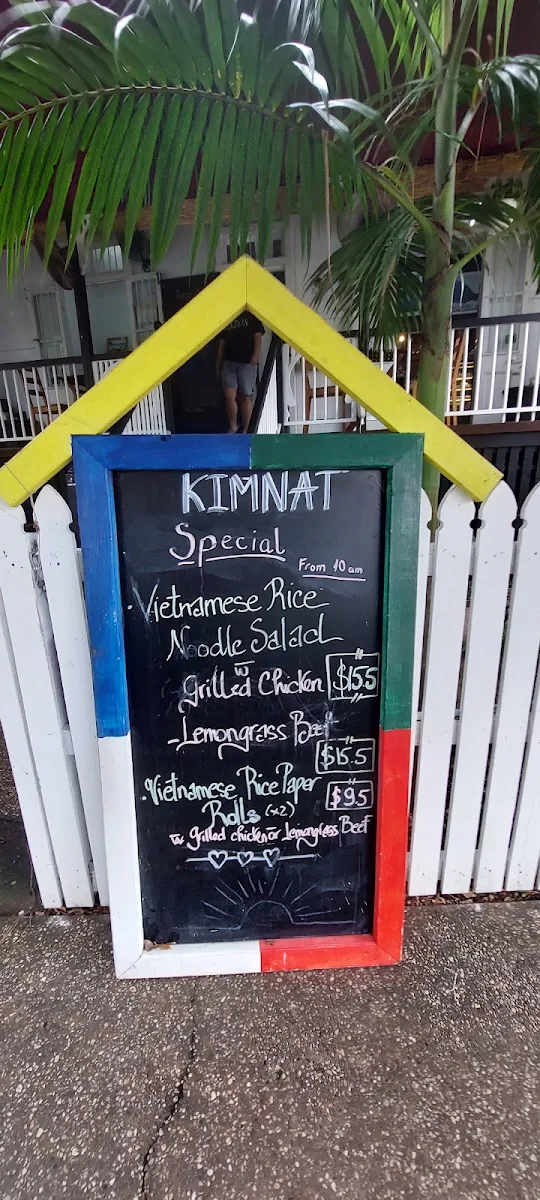 KIMNAT
Special
From 10am
·Vietnamese Rice
Noodle Salad
w
Grilled Chicken $15.5
-Lemongrass Beef
$15.5
·Vietnamese Rice Paper
Rolls (x2) $9.5
w grilled chicken or Lemongrass Beef